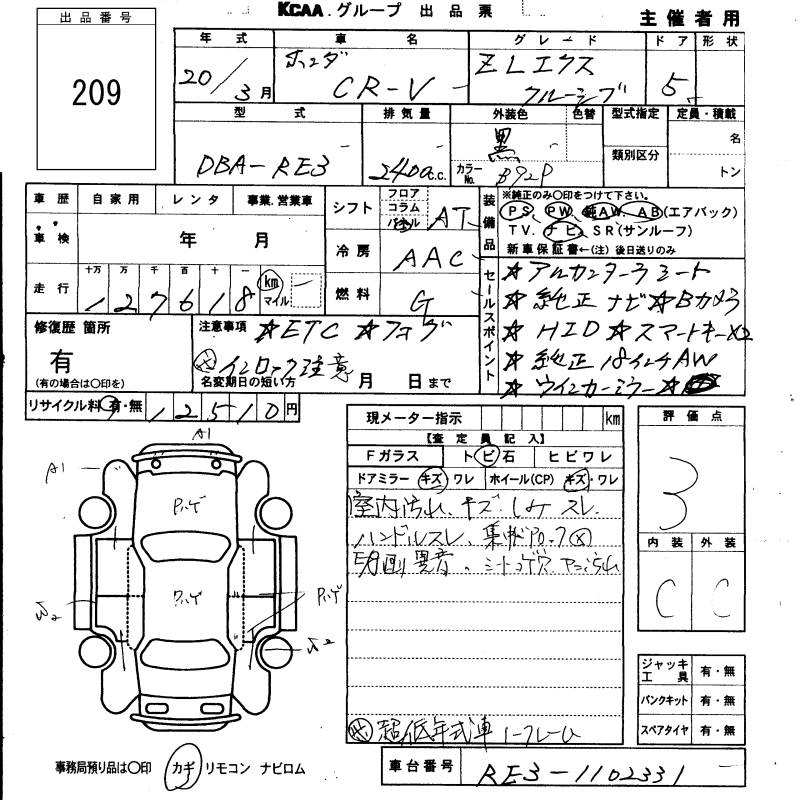 KCAA.グループ 出品票
主催者用
出品番号
209
年式 車名 グレード ドア 形状
20/3月 ホンダ CR-V ZLエクスクルーシブ 5
型式 排気量 外装色 色替 型式指定 定員・積載
類別区分
DBA-RE3 2400c.c. 黒 カラーNo. B92P 名 トン
車歴 自家用 レンタ 事業.営業車
車検 年 月
走行 十万 万 千 百 十 一
127618 km マイル
シフト フロア コラム AT
冷房 AAC
燃料 G
装備品 ※純正のみ○印をつけて下さい。
PS、PW、純AW、AB(エアバック)
TV、ナビ、SR(サンルーフ)
新車保証書←(注)後日送りのみ
セールスポイント
★アルカンターラシート
★純正ナビ★Bカメラ
★HID★スマートキーX2
★純正18インチAW
★ウインカーミラー★
修復歴 箇所
有
(有の場合は○印を)
注意事項 ★ETC ★フォグ
インロック注意
名変期日の短い方 月 日まで
リサイクル料 有・無 12510円
現メーター指示 km
【査定員記入】
Fガラス トビ石 ヒビワレ
ドアミラー キズ・ワレ ホイール(CP) キズ・ワレ
室内汚れ、キズ、シートスレ
ハンドルスレ、
異音、シートコゲ穴
超低年式車
評価点
3
内装 外装
C C
ジャッキ工具 有・無
パンクキット 有・無
スペアタイヤ 有・無
A1
A1
事務局預り品は○印 カギ リモコン ナビロム
車台番号 RE3-1102331